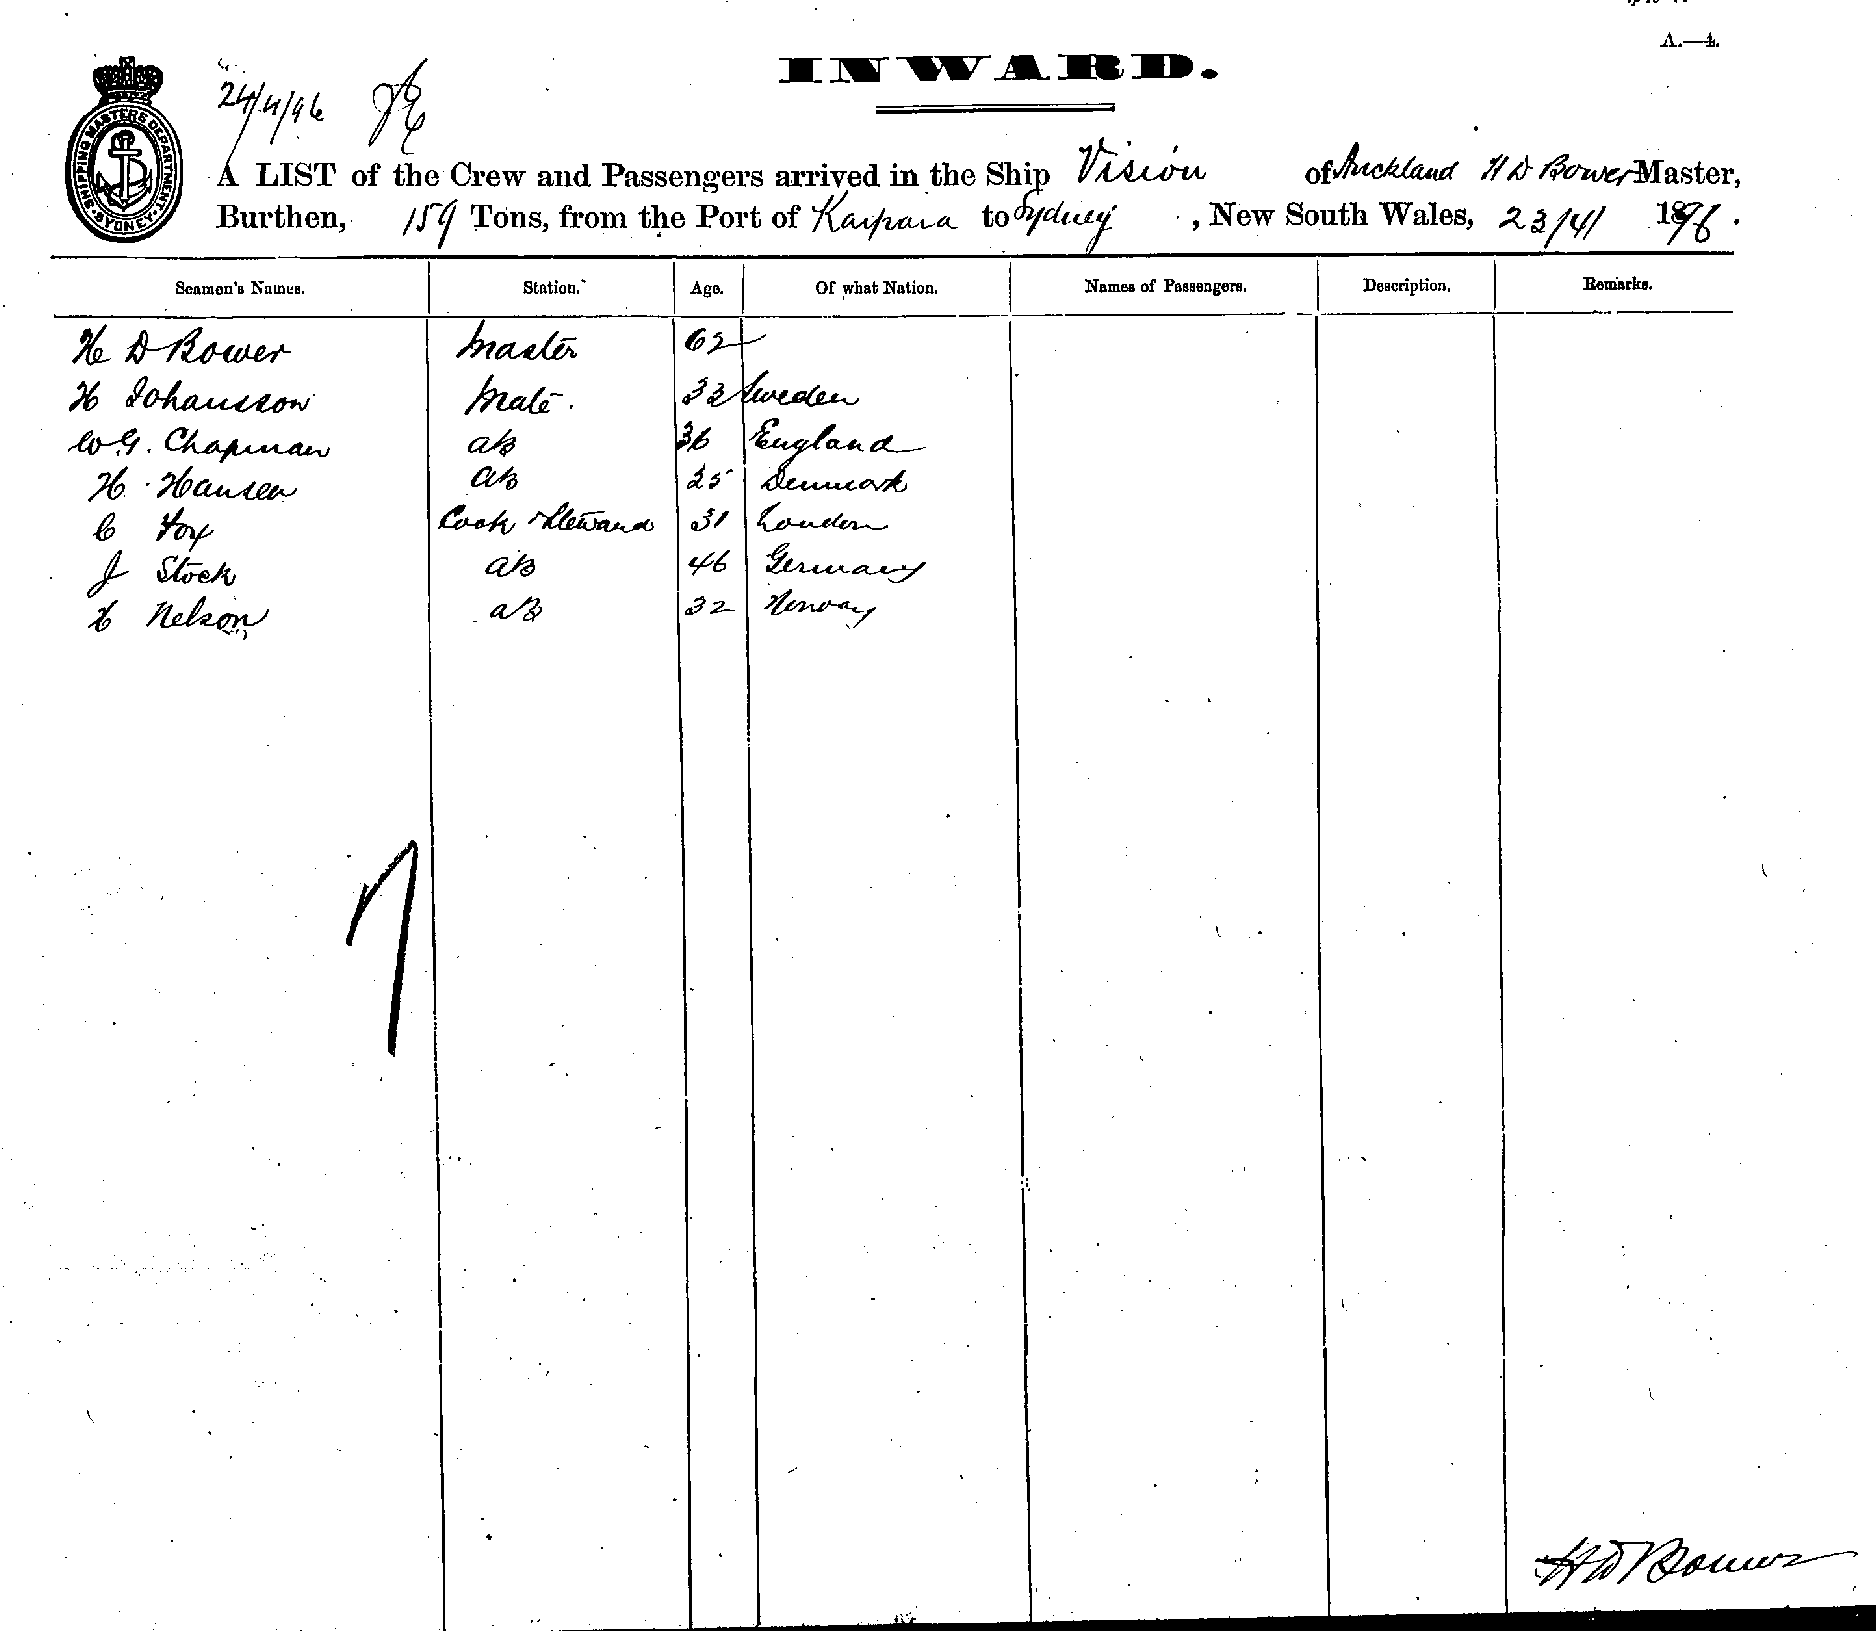 A.—4.
INWARD.
24/4/96
SHIPPING MASTERS DEPARTMENT. SYDNEY.
A LIST of the Crew and Passengers arrived in the Ship Vision of Auckland H D Bower Master,
Burthen, 159 Tons, from the Port of Kaipara to Sydney, New South Wales, 23/4/ 1896.
Seamen's Names. Station. Age. Of what Nation. Names of Passengers. Description. Remarks.
H D Bower Master 62
H Johansson Mate. 33 Sweden
W. G. Chapman AB 36 England
H Hansen AB 25 Denmark
C Fox Cook & Steward 31 London
J Stock AB 46 Germany
Nelson AB 32 Norway
7
H D Bower